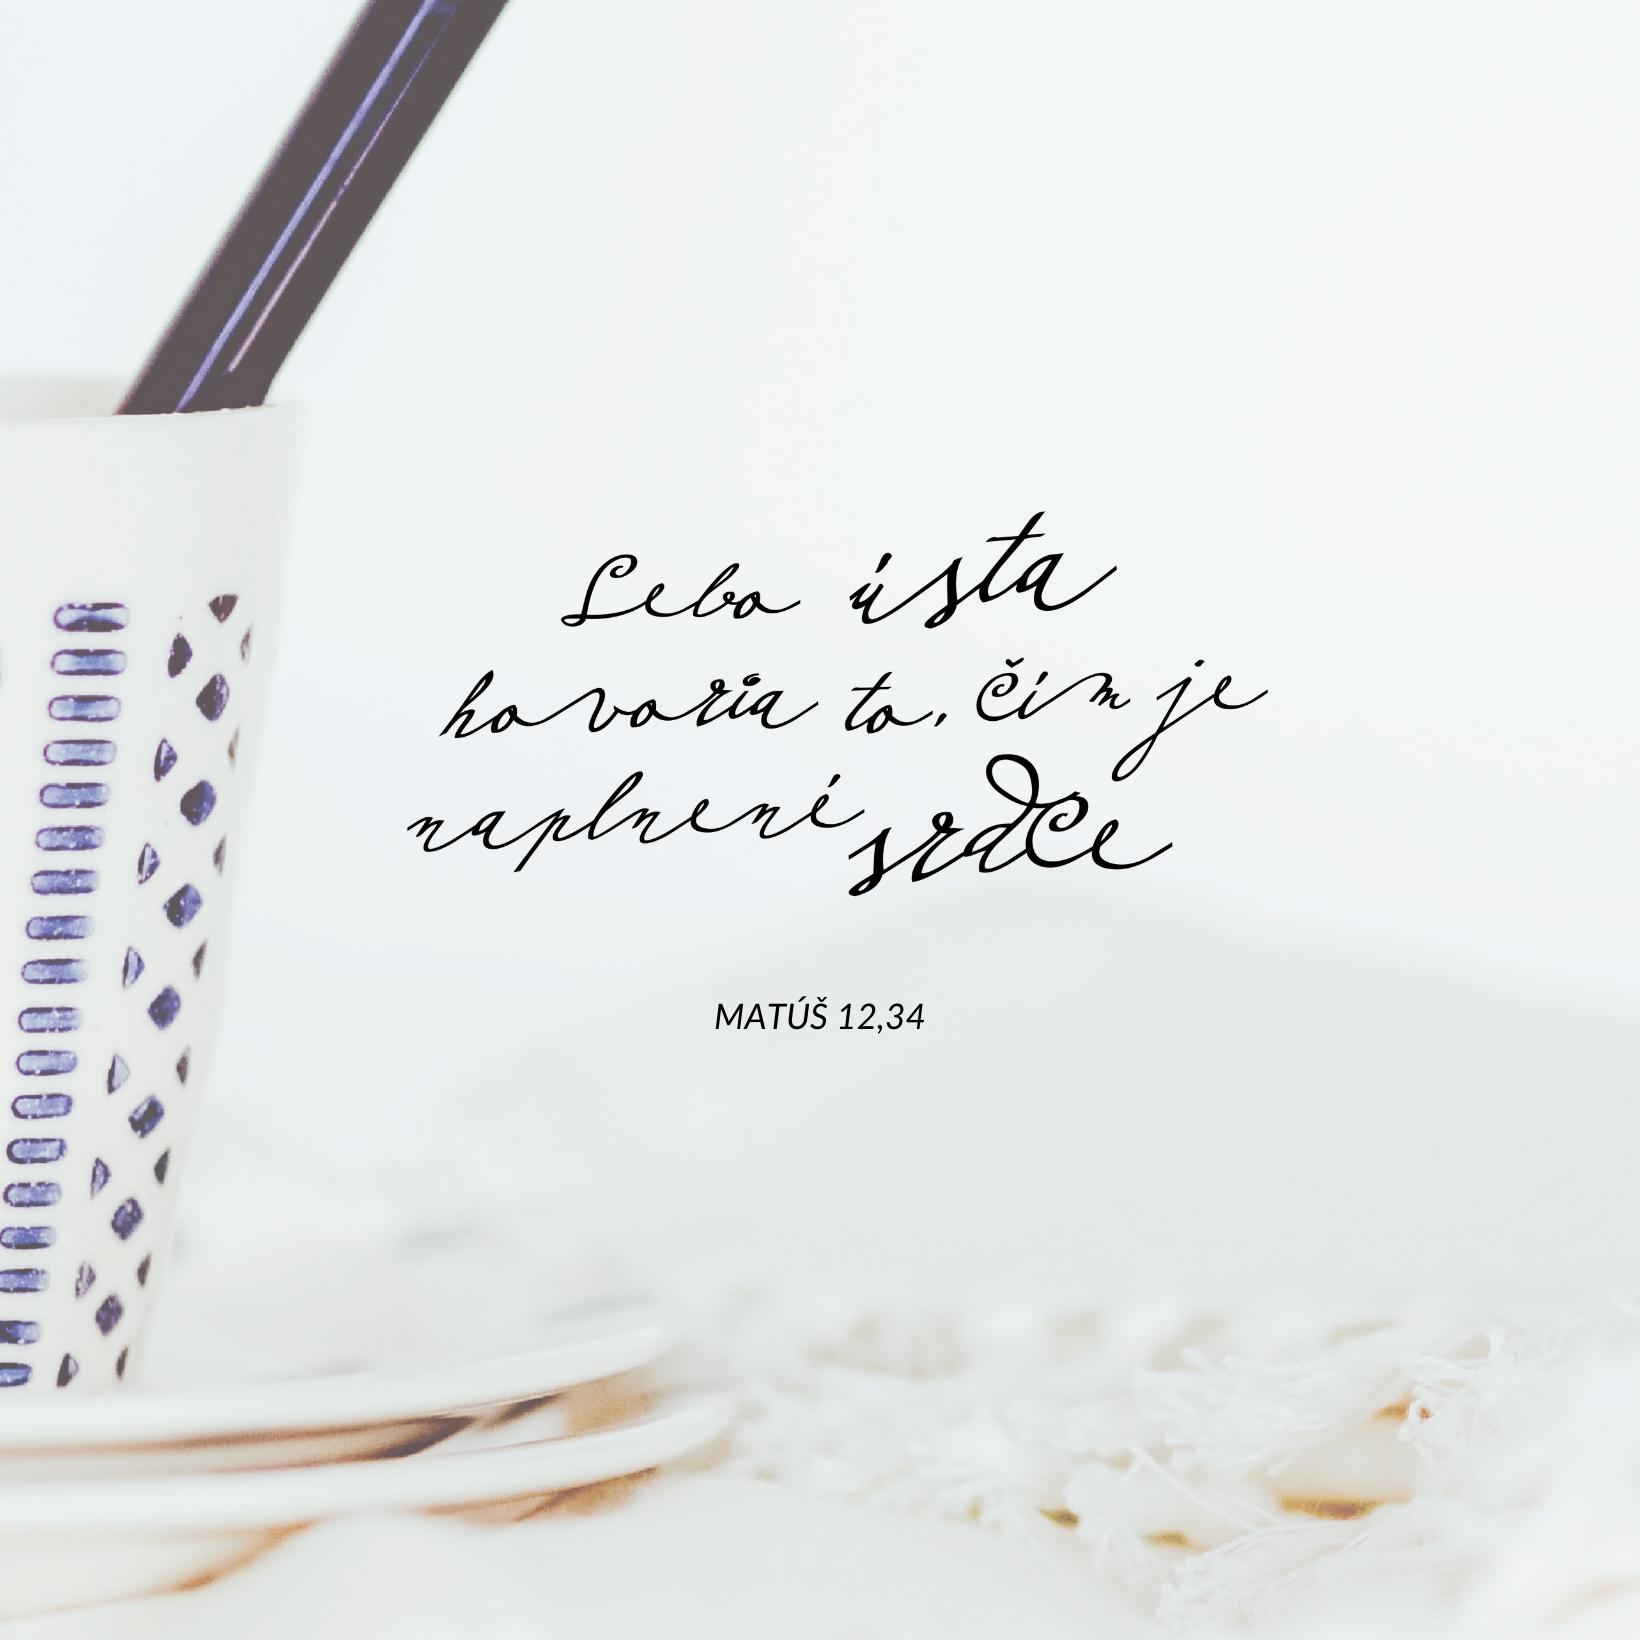 Lebo ústa
hovoria to, čím je
naplnené srdce
MATÚŠ 12,34